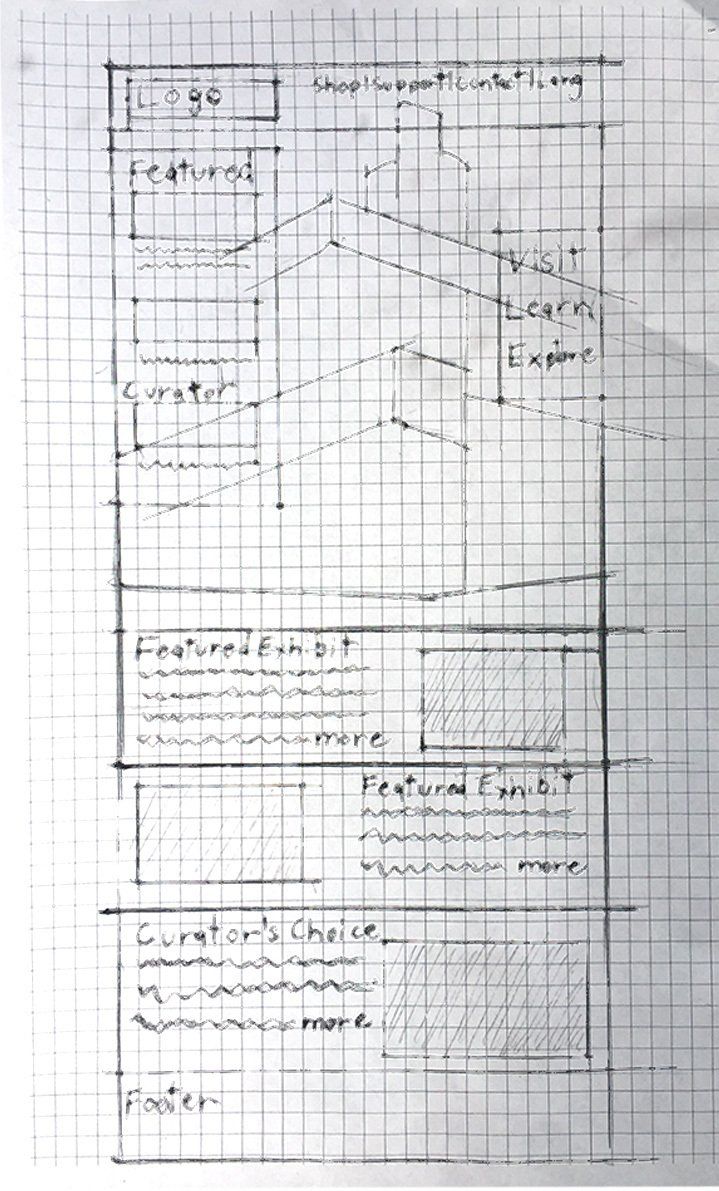 Logo
Shop|Support|Contact|Lang
Featured
Visit
Learn
Explore
Curator
Featured Exhibit
more
Featured Exhibit
more
Curator's Choice
more
Footer